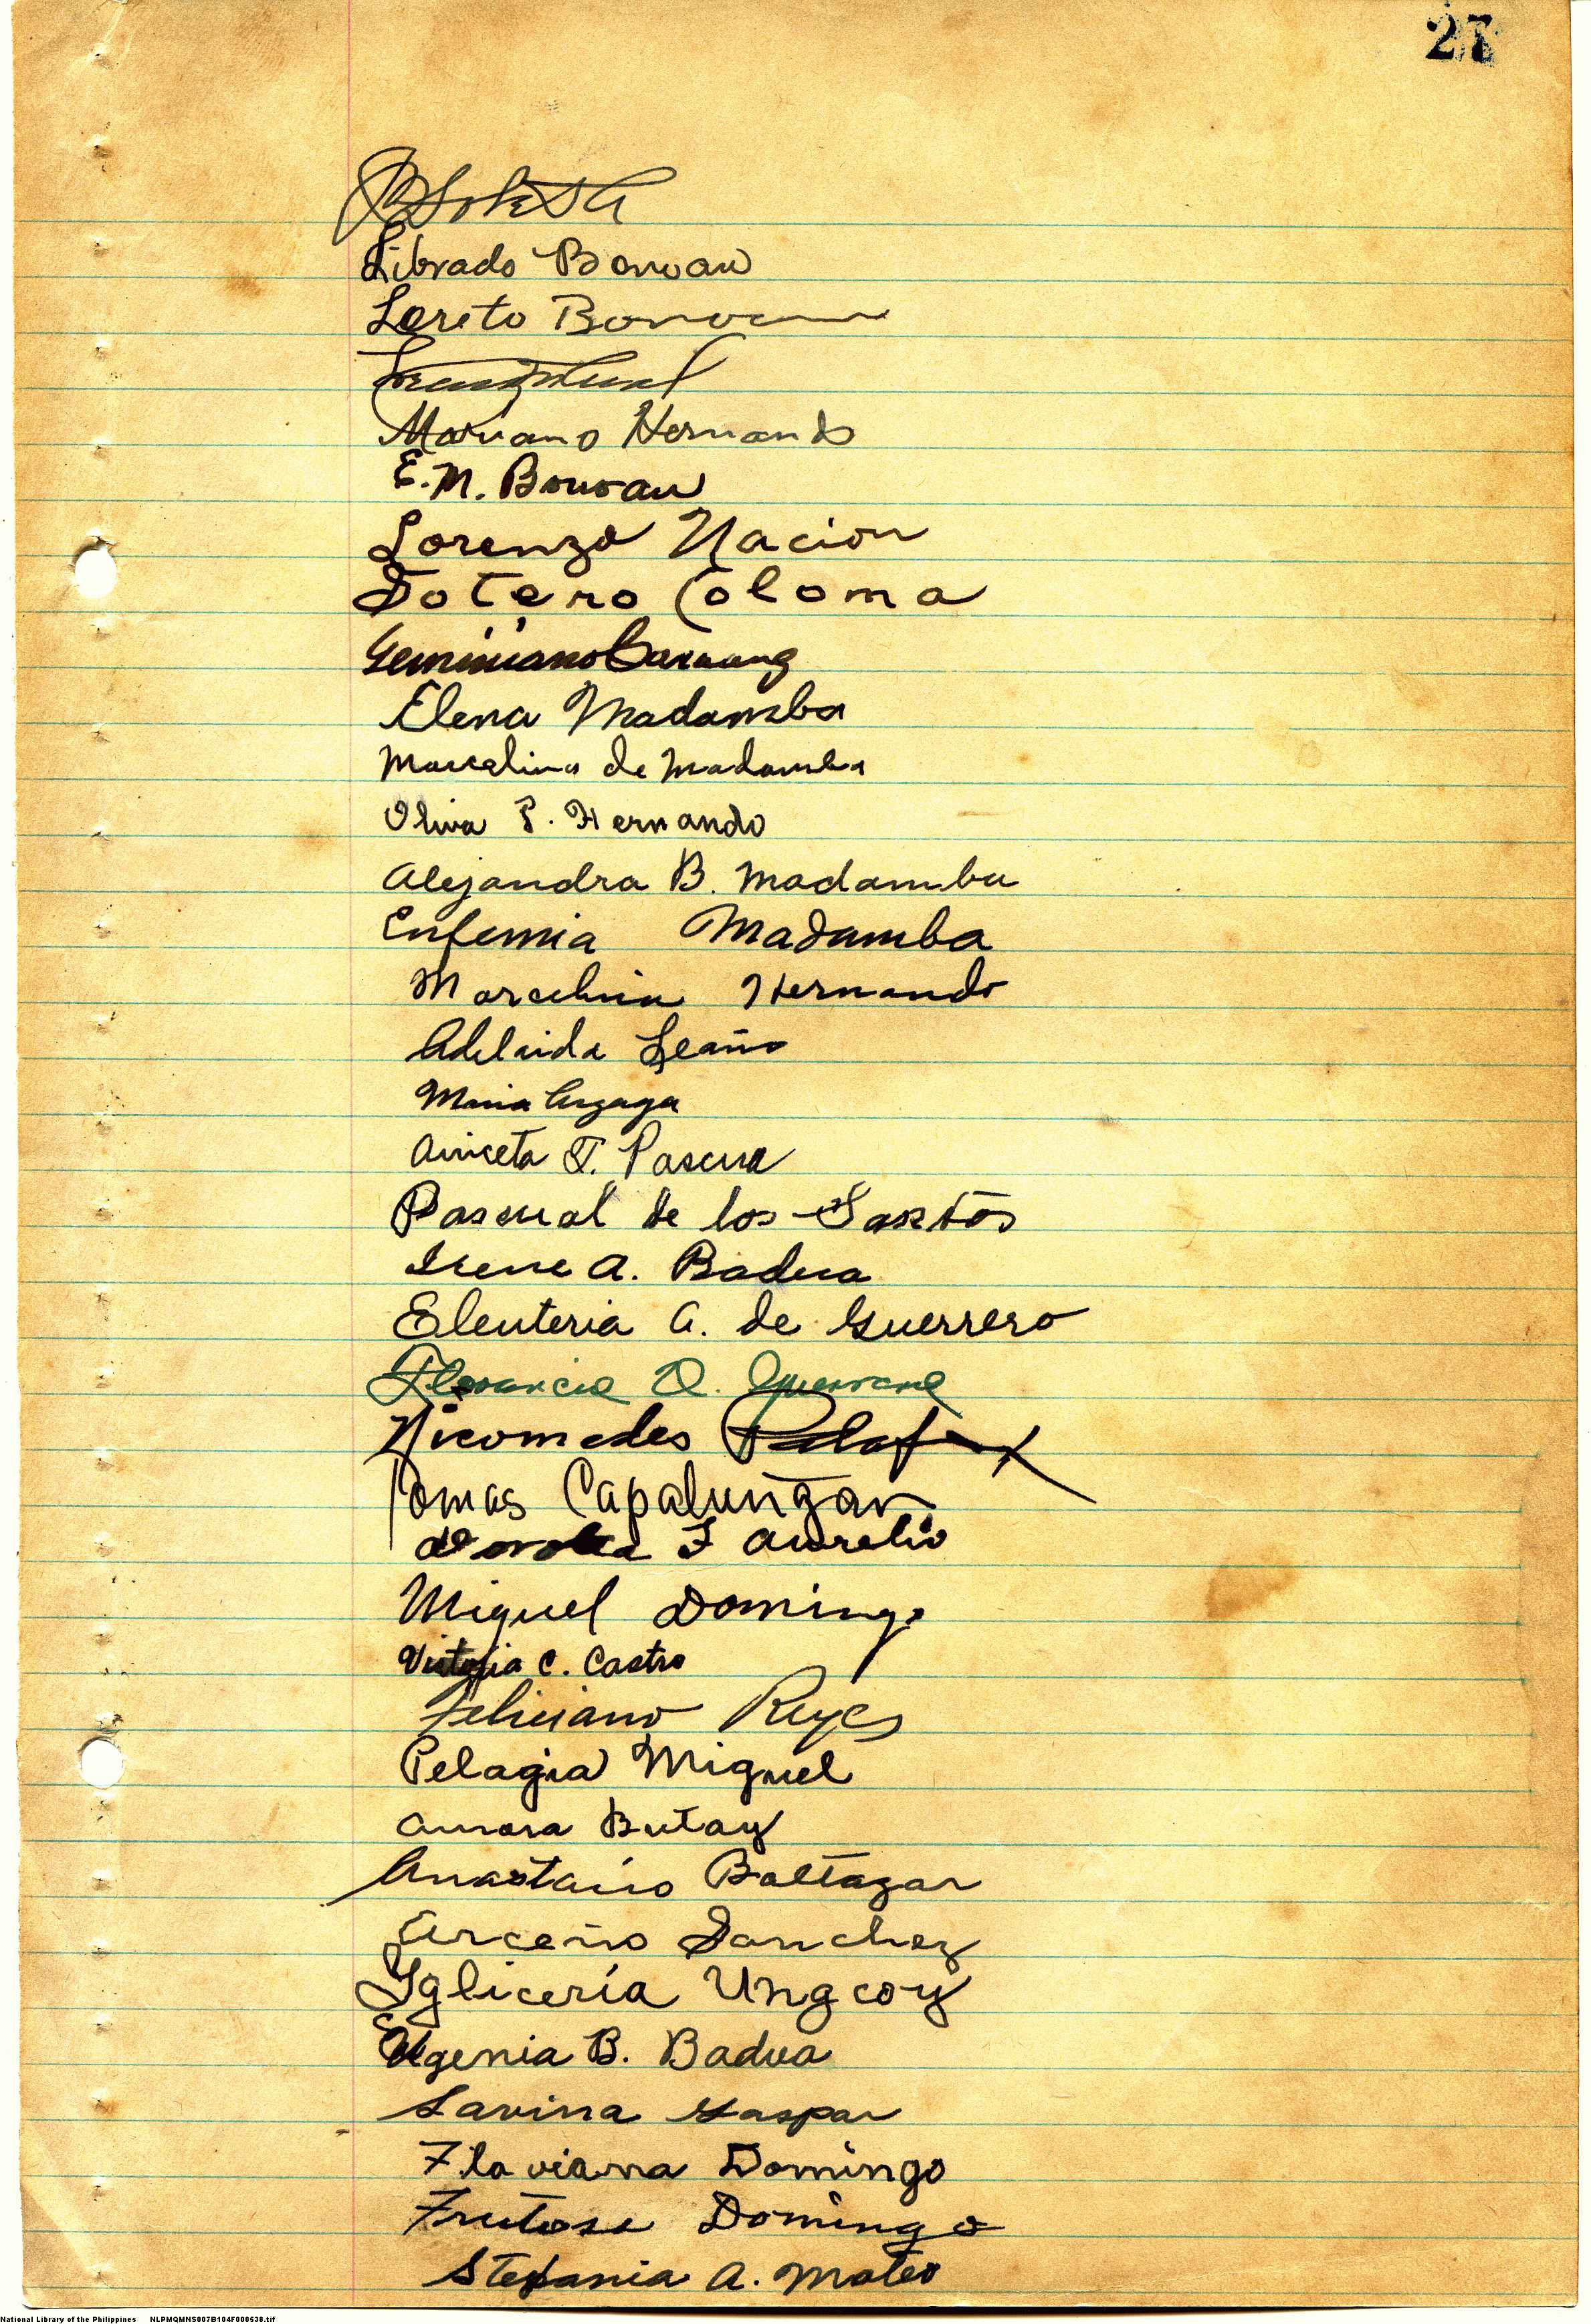 27
Librado Bonoan
Loreto Bonoan
Mariano Hernando
E. M. Bonoan
Lorenzo Nacion
Sotero Coloma
Geminiano
Elena Madamba
Marcelina de Madamba
Oliva P. Hernando
Alejandra B. Madamba
Eufemia Madamba
Marcelina Hernando
Adelaida Leaño
Maria
Aniceta T. Pascua
Pascual de los Santos
Irene A. Badua
Eleuteria A. de Guerrero
Florencia Q.
Nicomedes Palafox
Tomas Capalungan
F Aurelio
Miguel Domingo
Victoria C. Castro
Feliciano Reyes
Pelagia Miguel
Aurora Butay
Anastacio Baltazar
Sanchez
Ygliceria Ungcoy
Eugenia B. Badua
Savina Gaspar
Flaviana Domingo
Frutosa Domingo
Stefania A. Mateo
National Library of the Philippines NLPMQMNS007B104F000538.tif